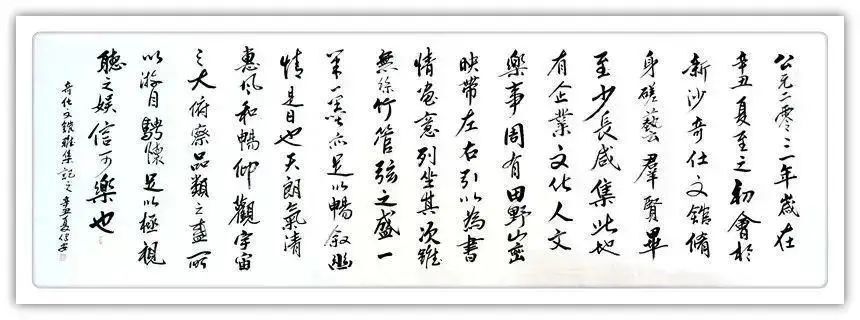 公元二零二一年歲在
辛丑夏至之初會於
新沙奇仕文館脩
身磋藝羣賢畢
至少長咸集此地
有企業文化人文
樂事周有田野山巒
映帶左右引以為書
情畫意列坐其次雖
無絲竹管弦之盛一
筆一墨亦足以暢叙幽
情是日也天朗氣清
惠風和暢仰觀宇宙
之大俯察品類之盛所
以游目騁懷足以極視
聽之娱信可樂也
奇仕文館雅集記之 辛丑夏